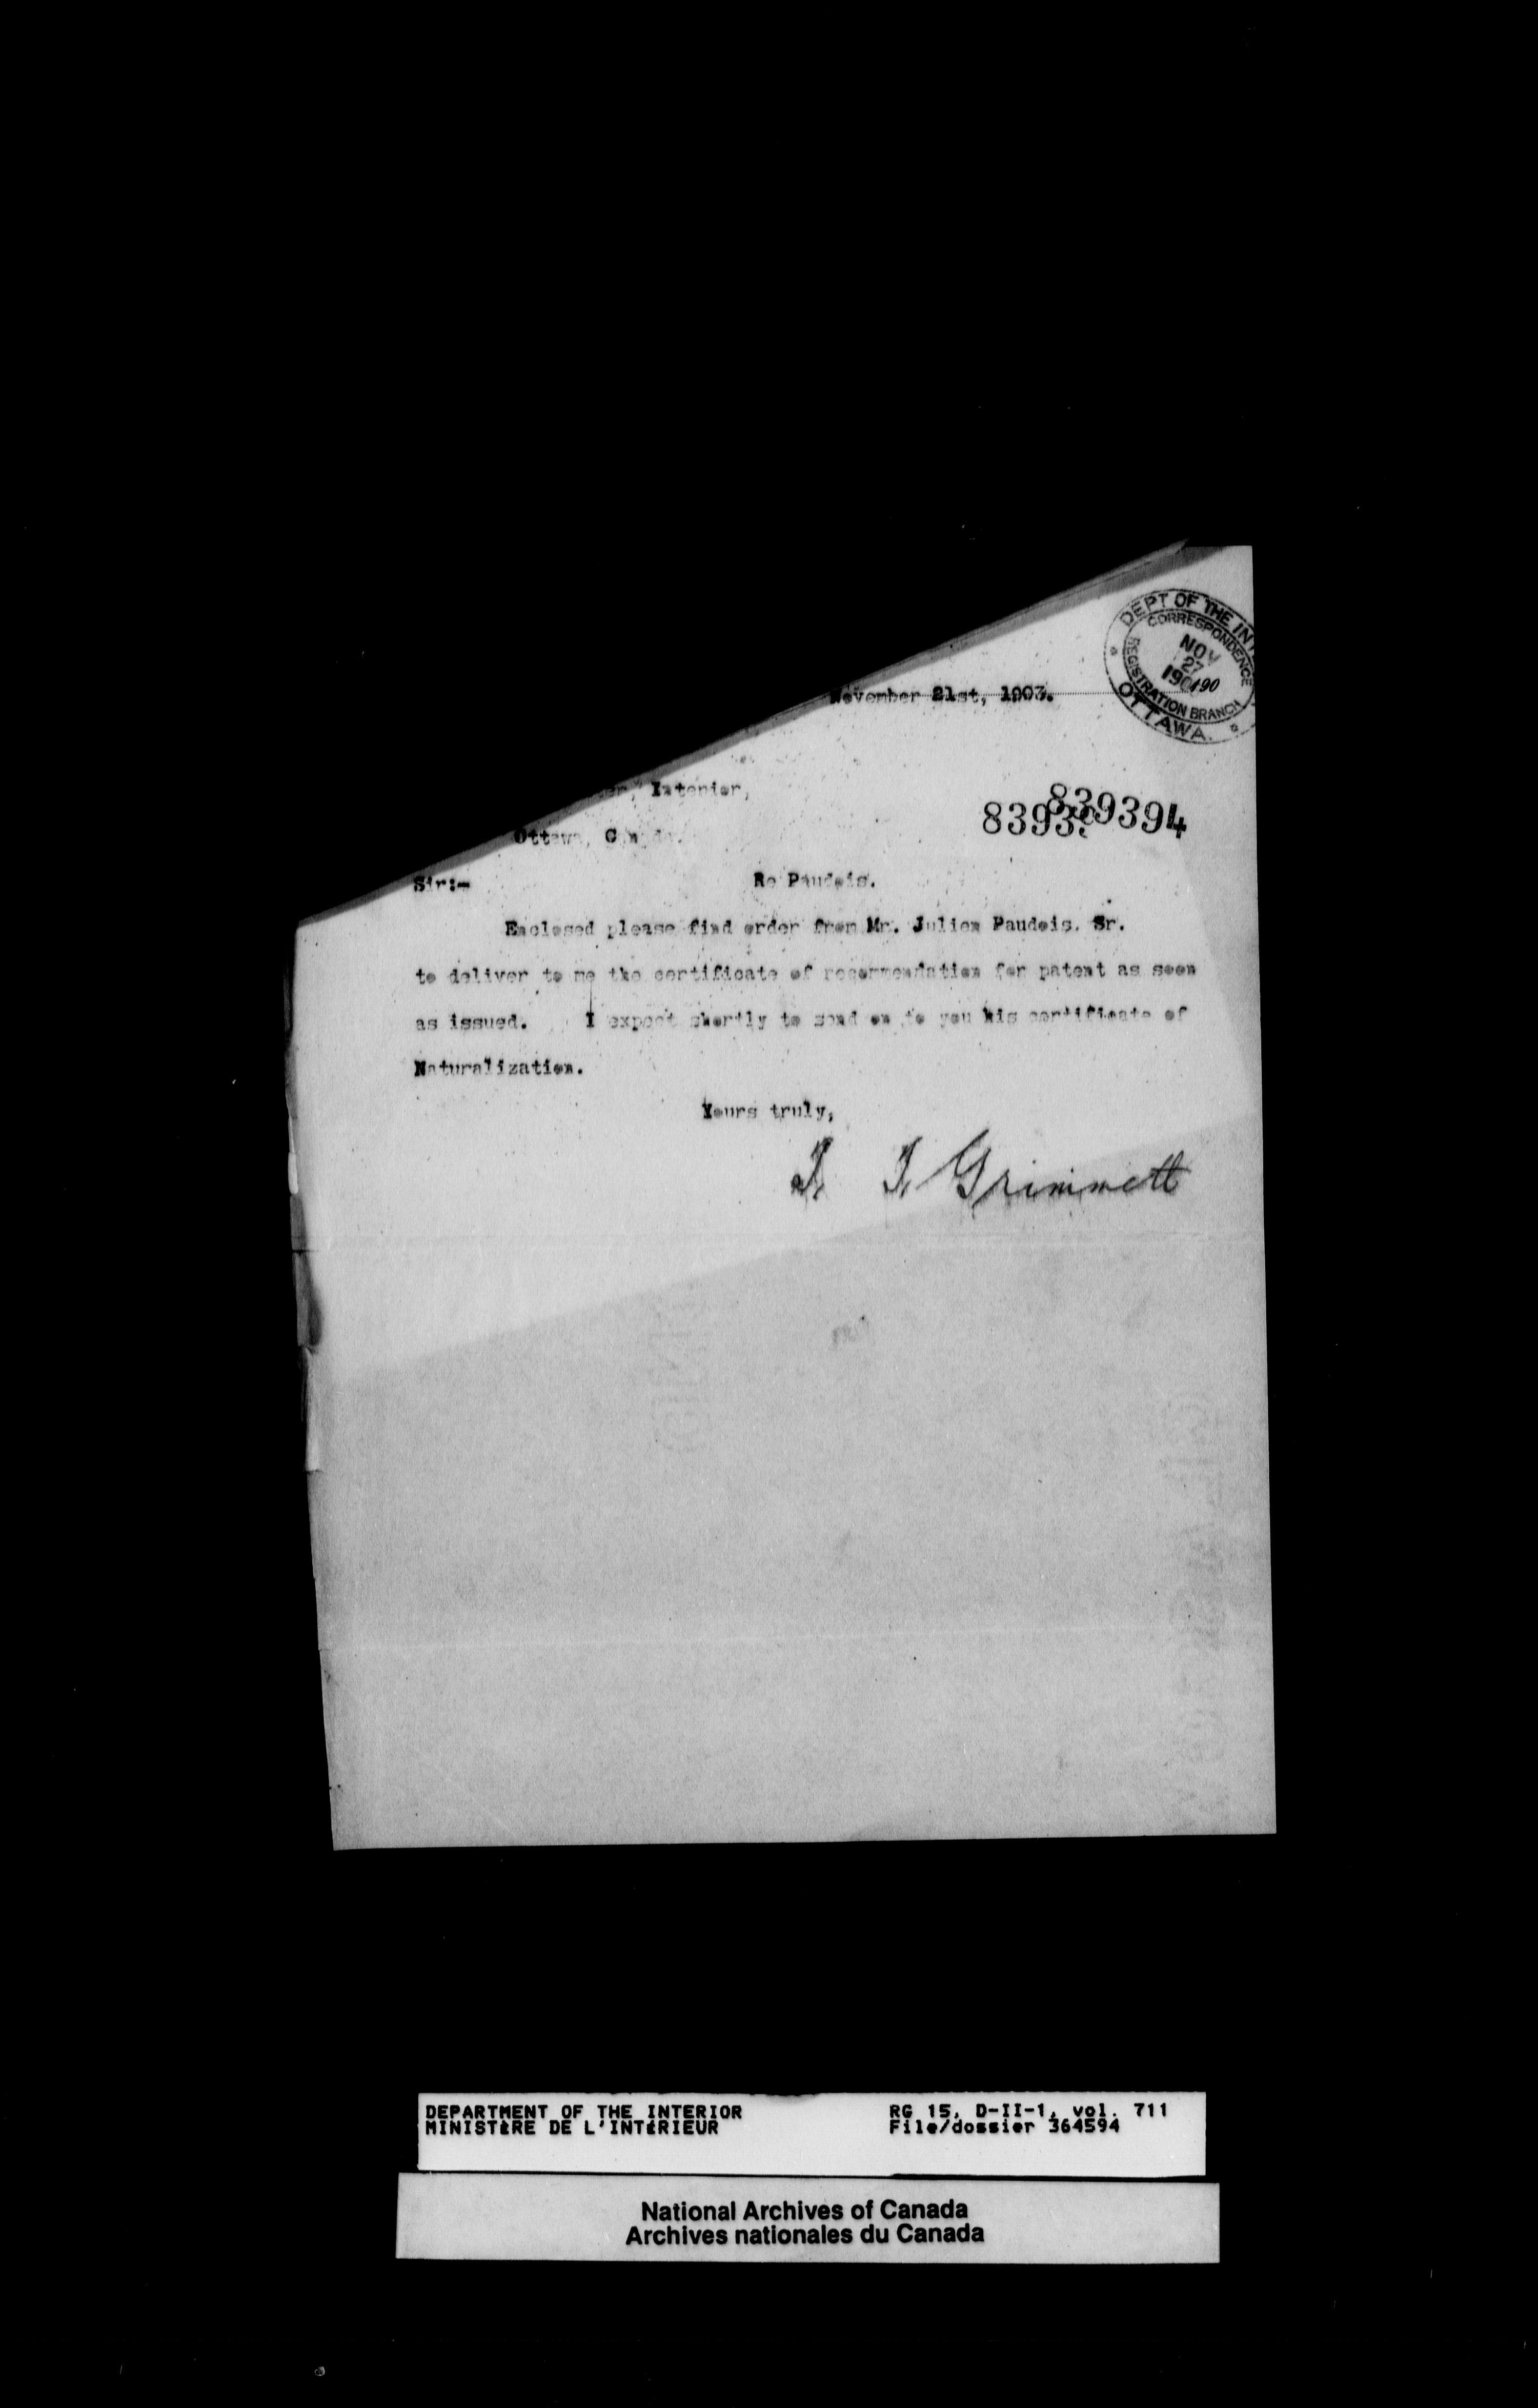 DEPT OF THE INT
CORRESPONDENCE
NOV
27
190
REGISTRATION BRANCH
OTTAWA.
November 21st, 1903.
er, Interior,
Ottawa, Canada.
839394
Sir:-
Re Paudois.
Enclosed please find order from Mr. Julien Paudois. Sr.
to deliver to me the certificate of recommendation for patent as soon
as issued. I expect shortly to send on to you his certificate of
Naturalization.
Yours truly,
Grimmett
DEPARTMENT OF THE INTERIOR
MINISTÈRE DE L'INTÉRIEUR
RG 15, D-II-1, vol. 711
File/dossier 364594
National Archives of Canada
Archives nationales du Canada